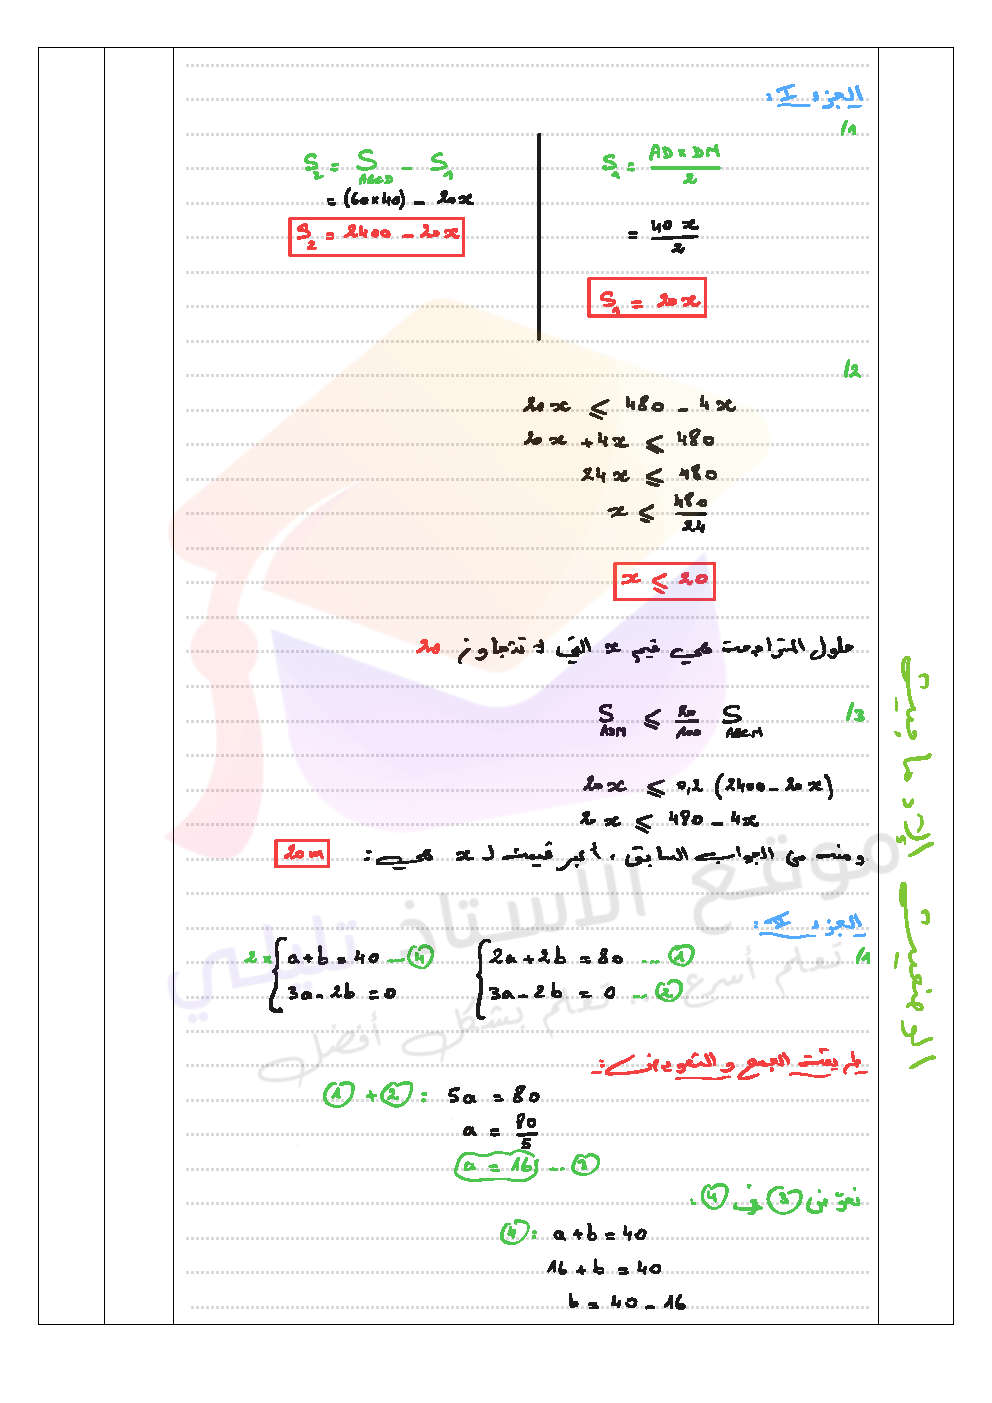 الجزء I :
1/
S₁ = AD × DM / 2
= 40 x / 2
S₁ = 20 x
S₂ = S ABCD - S₁
= (60×40) - 20x
S₂ = 2400 - 20x
2/
20x ⩽ 480 - 4x
20x + 4x ⩽ 480
24x ⩽ 480
x ⩽ 480 / 24
x ⩽ 20
حلول المتراجحة هي قيم x التي لا تتجاوز 20
3/
S ADM ⩽ 20/100 S ABCM
20x ⩽ 0,2 (2400 - 20x)
2 x ⩽ 480 - 4x
ومنه من الجواب السابق ، أكبر قيمة لـ x هي : 20m
الجزء I :
1/
{ 2a + 2b = 80 ... ①
3a - 2b = 0 ... ②
2× { a + b = 40 ... ④
3a - 2b = 0
طريقة الجمع والتعويض :
① + ② : 5a = 80
a = 80 / 5
a = 16 ... ③
نعوض ③ في ④ .
④ : a + b = 40
16 + b = 40
b = 40 - 16
الوضعية الإدماجية
موقع الأستاذ تليلي
تعلم أسرع ... تعلم بشكل أفضل